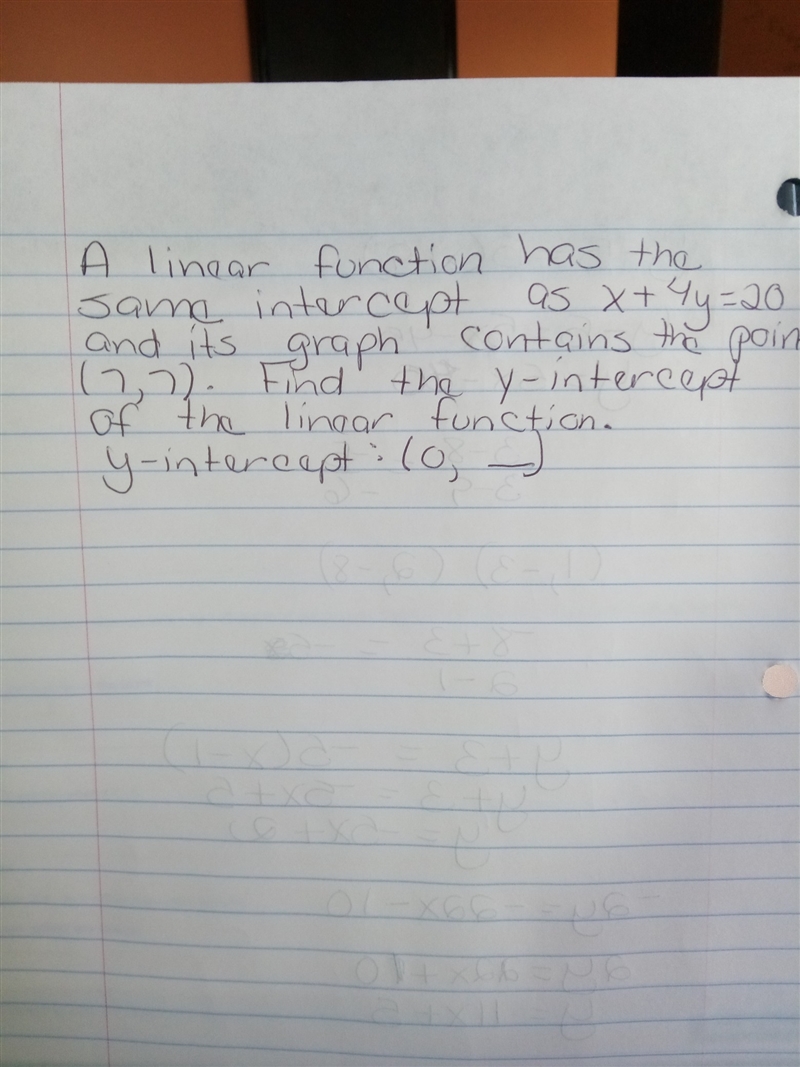 A linear function has the
same intercept as x+4y=20
and its graph contains the poin
(7,7). Find the y-intercept
of the linear function.
y-intercept: (0, __)